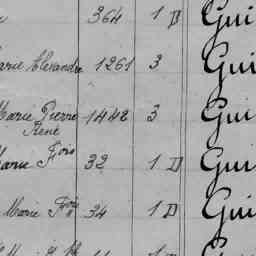 364 1 D Gui
arie Alexandre 1261 3 Gui
Marie Pierre 1442 3 Gui
René
Marie Fçois 32 1 D Gui
Marie Fçois 34 1 D Gui